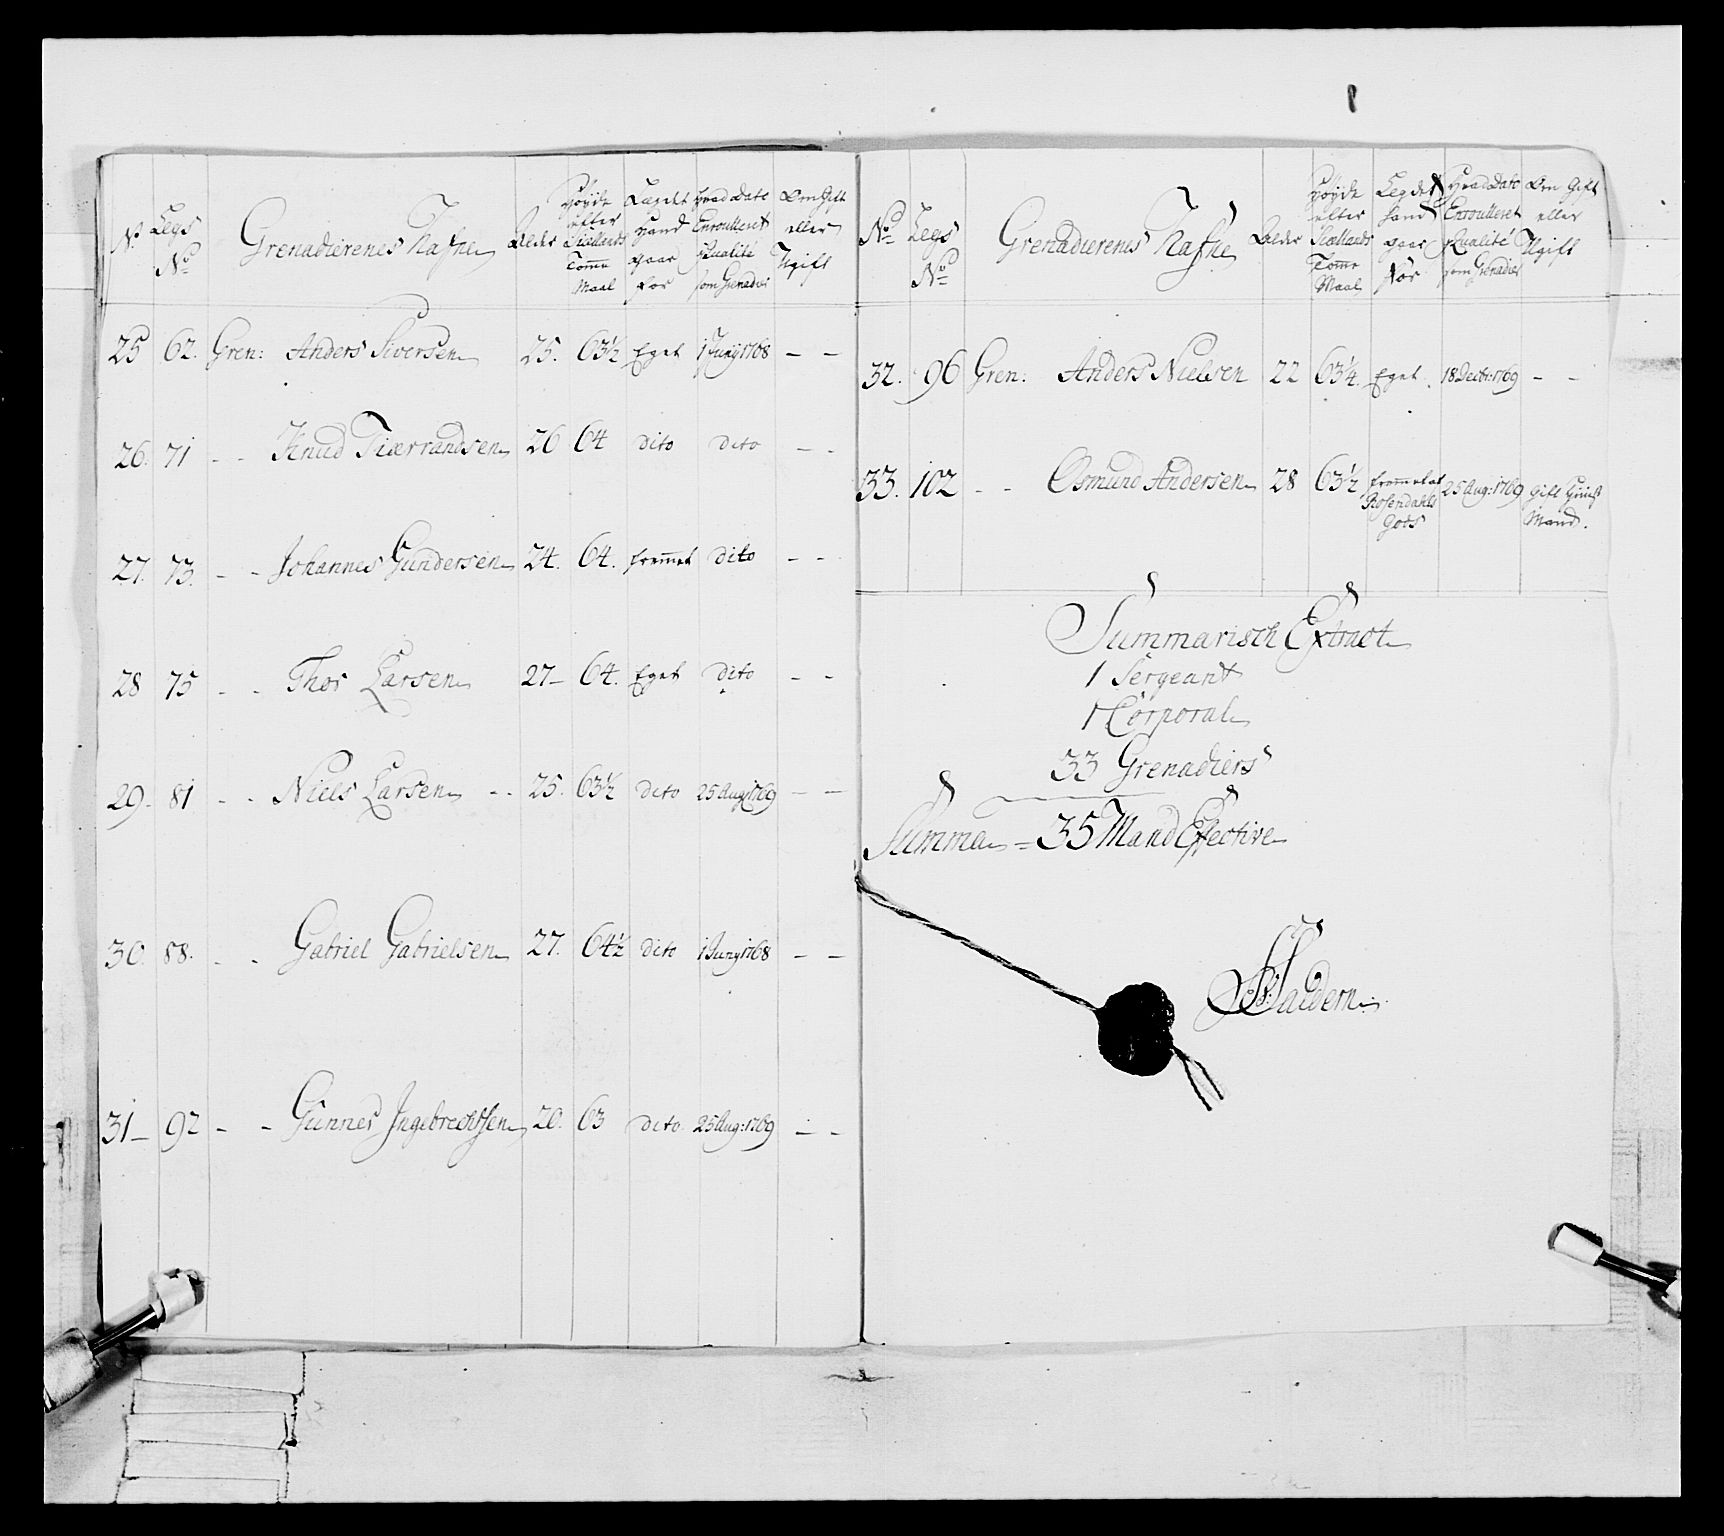 No Legs No Grenadierenes Nafne Alder Høyde efter Siællands Tomme Maal Lægdet Hand gaar for Hvad Dato Enroulleret Qualité som Grenadier Om Gift eller Ugift
25 62. Gren: Anders Siversen 25. 63½ Eget 1 Juny 1768 - -
26. 71 - - Knud Tiærrandsen 26 64 dito dito - -
27. 73. - - Johannes Gundersen 24. 64. fremmet dito - -
28 75 - - Thor Larsen 27- 64. Eget dito - -
29. 81 - - Niels Larsen - - 25. 63½ dito 25 Aug: 1769 - -
30. 88. - - Gabriel Gabrielsen 27. 64½ dito 1 Juny 1768 - -
31- 92 - - Gunnes Ingebrechtsen 20. 63 dito 25 Aug: 1769 - -
No Legs No Grenadierenes Nafne Alder Høyde efter Siællands Tomme Maal Legdet hand gaar for Hvad Dato Enroulleret Qualité som Grenadier Om Gift eller Ugift
32. 96 Gren: Anders Nielsen 22 63¼ Eget 18 Decbr: 1769 - -
33. 102 - - Osmund Andersen 28 63½ fremmet 25 Aug: 1769 Gift Huus
Rosendahls Mand.
Gods
Summarisch Extract
1 Sergeant
1 Corporal
33 Grenadiers
Summa = 35 Mand Effective